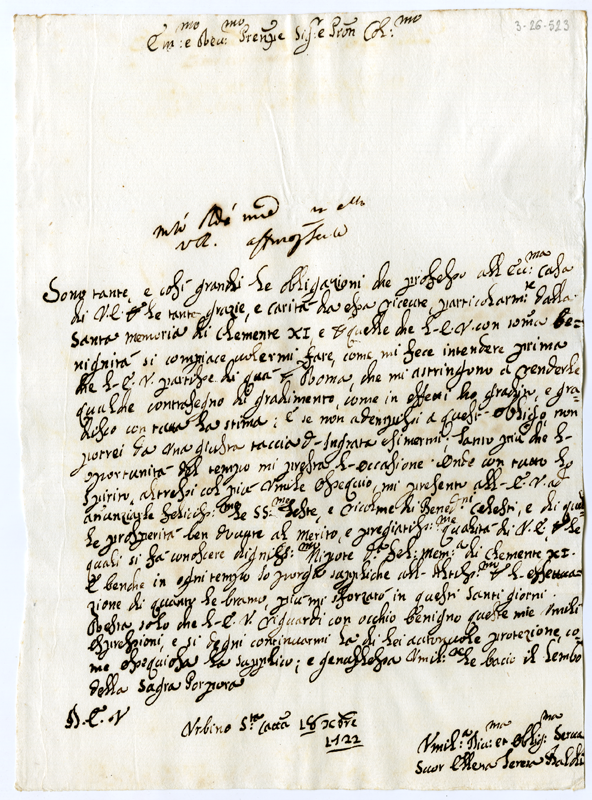 3-26-523
Em:mo e Rev:mo Prenpe Sig:re e Pron Col:mo
Sono tante, e così grandi le obligazioni che professo all Ecc:ma Casa
di V.E. le tante grazie, e carità da essa ricevute, particolarm:te dalla
Santa memoria di Clemente XI, e quelle che l-E.V. con som:a be-
nignità si compiace volermi fare, come mi fece intendere prima
che l-E.V. partisse di quà Roma, che mi astringono à renderle
qualche contrasegno di gradimento, come in effetti ho gradito, e gra-
disco con tutta la stima; E se non adempissi a questi oblighi, non
potrei da una giusta taccia d-Ingrata esimermi, tanto più che l-
oportunità del tempo mi presta l-occasione. Onde con tutto lo
spirito, altresì col più umile ossequio, mi presento all-E.V. ad
anunziarle feliciss:me le SS:me feste, e ricolme di Bened:ni Celesti, e di quel-
le prosperità ben dovute al merito, e pregiatiss:me qualità di V.E. le
quali si fà conoscere dignis:mo Nipote fel: mem:a di Clemente XI.
E benche in ogni tempo Io porga suppliche all-Altis:mo l-effettua-
zione di quanto le bramo più mi sforzarò in questi Santi giorni.
Resta solo che l-E.V. riguardi con occhio benigno queste mie umili
espressioni, e si degni continuarmi la di lei autorevole protezione, co-
me ossequiosa la supplico; e genuflessa umil:te le bacio il lembo
della Sagra Porpora
D.E.V
Urbino S:ta Catta 16 Xbre
1722
Umil:a Div:ma et Oblig:ma Serva
Suor Elena Teresa Baldi